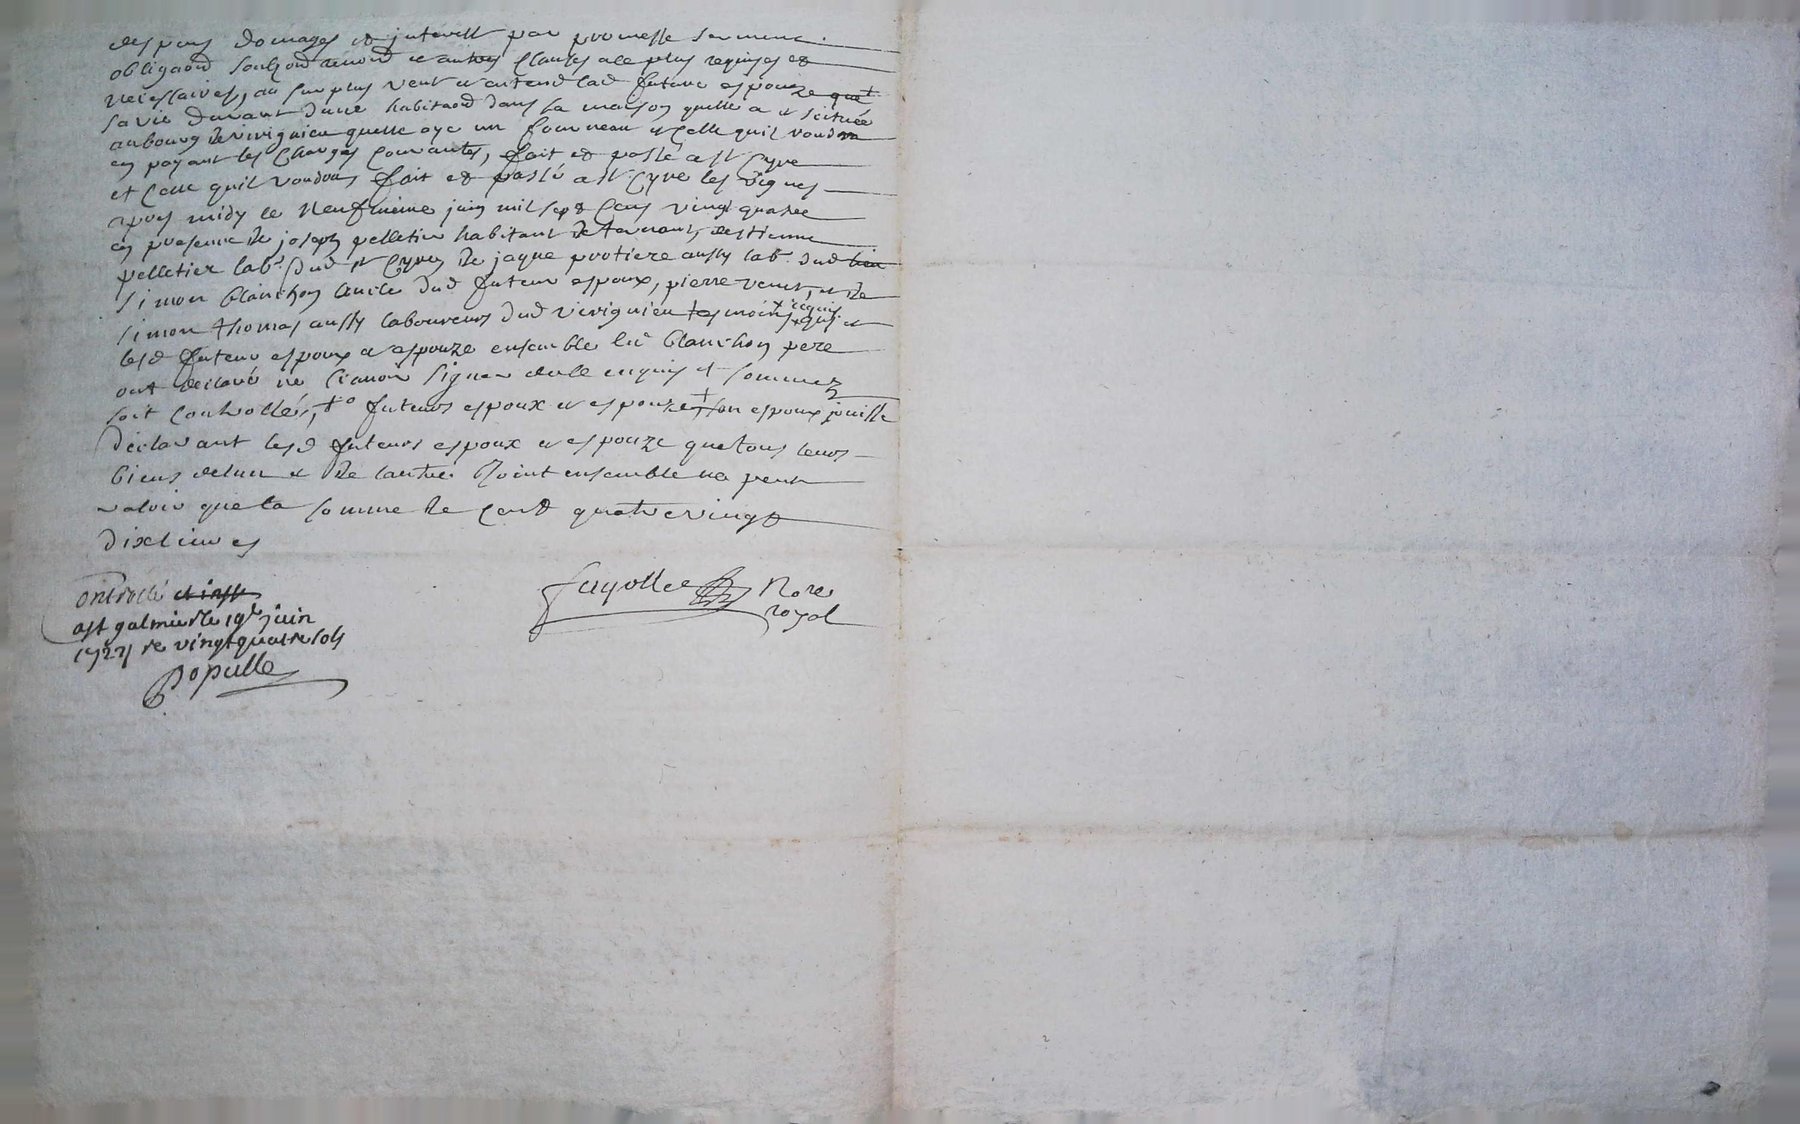 despens domages et interest par promesse serment
obligaon soubzon renond et autres clauses a ce plus requises et
necessaires, au surplus veut et entend lad future espouze que
sa vie durant d'une habitaon dans sa maison quelle a et scituée
au bourg de virignieu quelle aye un fourneau et celle quil voudra
en payant les charges courantes, fait et passé a st Cyre
et celle quil voudra fait et passé a st Cyre les vignes
apres midy le neufvieme juin mil sept cens vingt quatre
en presence de joseph pelletier habitant de destienne
pelletier labr dud st Cyre, de jaque protiere aussy labr dud lieu
simon blanchon oncle dud futeur espoux, pierre et de
simon thomas aussy laboureurs dud virignieu tesmoins
lesd futeur espoux et espouze ensemble led blanchon pere
ont declaré ne scavoir signer de ce enquis et sommez
soit controllés, + futeurs espoux et espouze + son espoux jouisse
declarant lesd futeurs espoux et espouze que tous leurs
biens de lun et de lautre joint ensemble ne peut
valoir que la somme de cent quatre vingt
dix livres
fayolle Nore
royal
Controllé et insst
a st galmier le 19e juin
1724 re vingt quatre sols
Populle